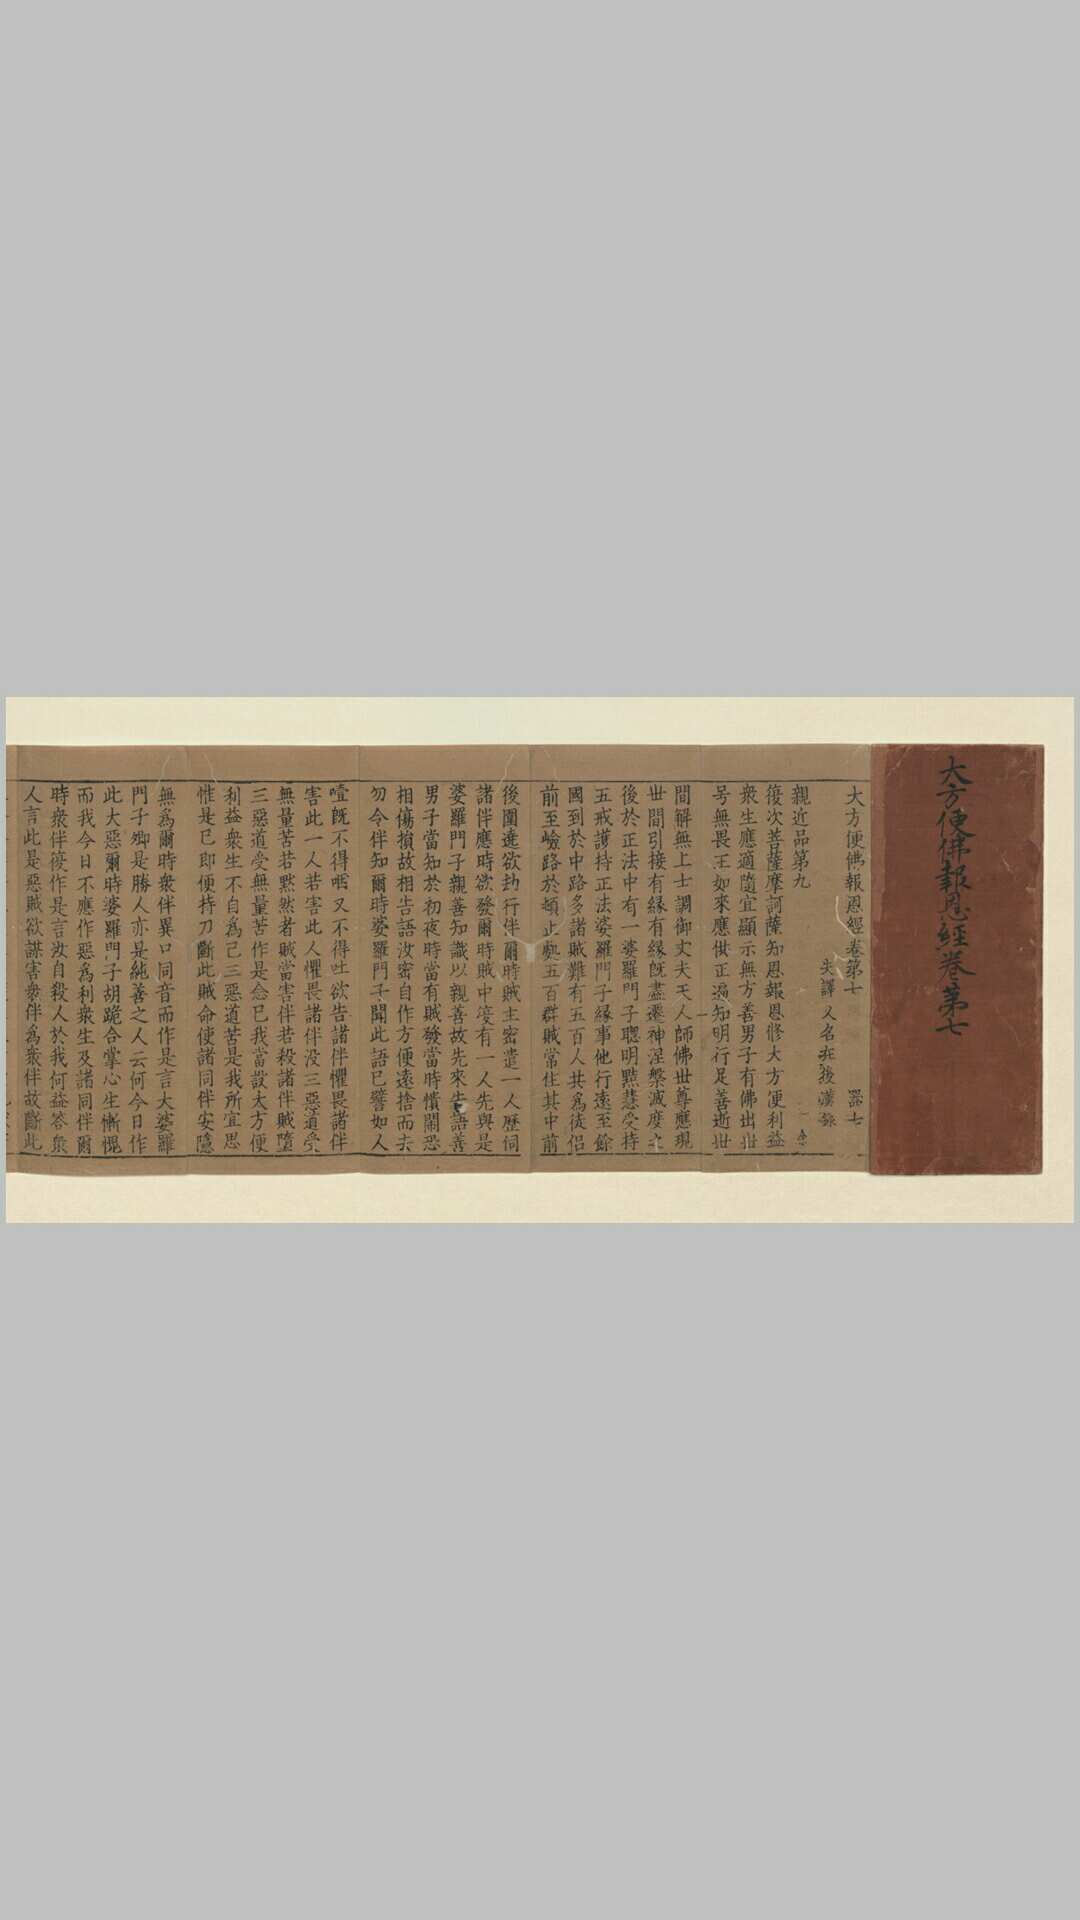 大方便佛報恩經卷第七
大方便佛報恩經卷第七 器七
失譯又名在後漢錄
親近品第九
復次菩薩摩訶薩知恩報恩修大方便利益
衆生應適隨宜顯示無方善男子有佛出世
号無畏王如來應供正遍知明行足善逝世
間解無上士調御丈夫天人師佛世尊應現
世間引接有緣有緣旣盡遷神涅槃滅度之
後於正法中有一婆羅門子聰明黠慧受持
五戒護持正法婆羅門子緣事他行遠至餘
國到於中路多諸賊難有五百人共爲徒侶
前至嶮路於頓止處五百群賊常住其中前
後圍遶欲劫行伴爾時賊主密遣一人歷伺
諸伴應時欲發爾時賊中復有一人先與是
婆羅門子親善知識以親善故先來告語善
男子當知於初夜時當有賊發當時憒閙恐
相傷損故相告語汝密自作方便遠捨而去
勿令伴知爾時婆羅門子聞此語已譬如人
噎旣不得咽又不得吐欲告諸伴懼畏諸伴
害此一人若害此人懼畏諸伴没三惡道受
無量苦若黙然者賊當害伴若殺諸伴賊墮
三惡道受無量苦作是念已我當設大方便
利益衆生不自爲己三惡道苦是我所宜思
惟是已即便持刀斷此賊命使諸同伴安隱
無爲爾時衆伴異口同音而作是言大婆羅
門子卿是勝人亦是純善之人云何今日作
此大惡爾時婆羅門子胡跪合掌心生慚愧
而我今日不應作惡爲利衆生及諸同伴爾
時衆伴復作是言汝自殺人於我何益答衆
人言此是惡賊欲謀害衆伴爲衆伴故斷此